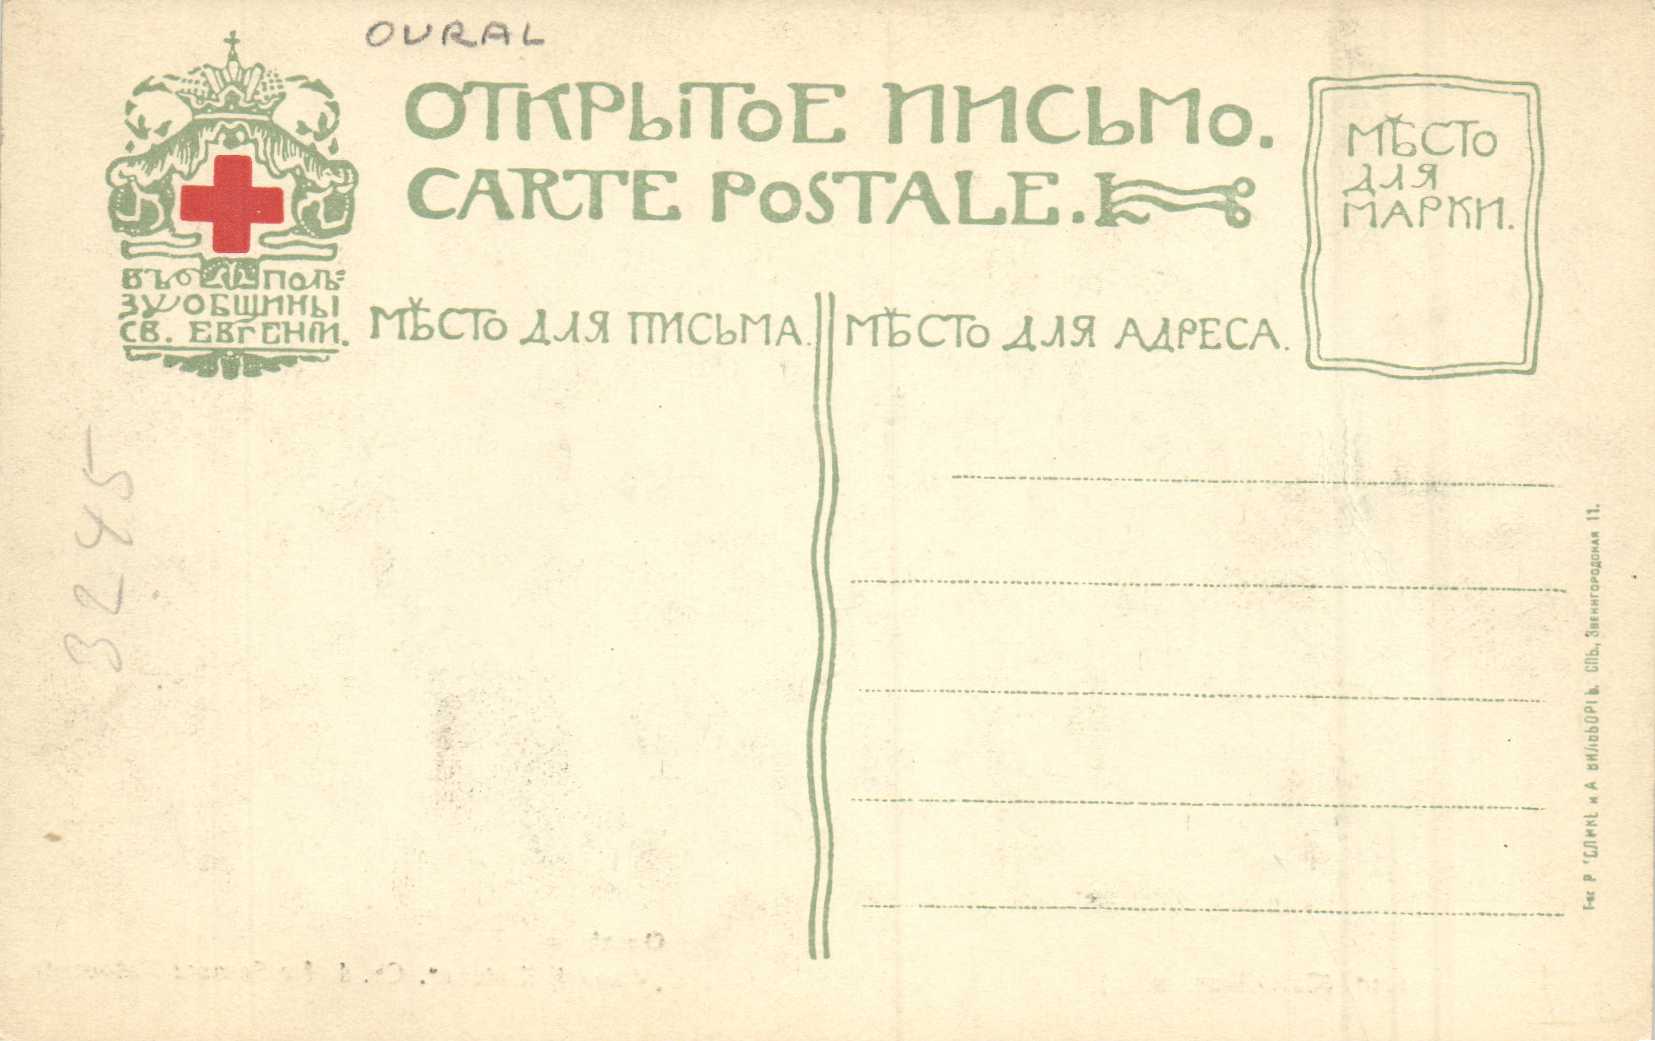 OURAL
ОТКРЫТОЕ ПИСЬМО.
CARTE POSTALE.
МѢСТО
ДЛЯ
МАРКИ.
ВЪ ПОЛЬ=
ЗУ ОБЩИНЫ
СВ. ЕВГЕНІИ.
МѢСТО ДЛЯ ПИСЬМА.
МѢСТО ДЛЯ АДРЕСА.
3245
Т-во Р. ГОЛИКЕ и А. ВИЛЬБОРГЪ. СПБ., Звенигородская 11.